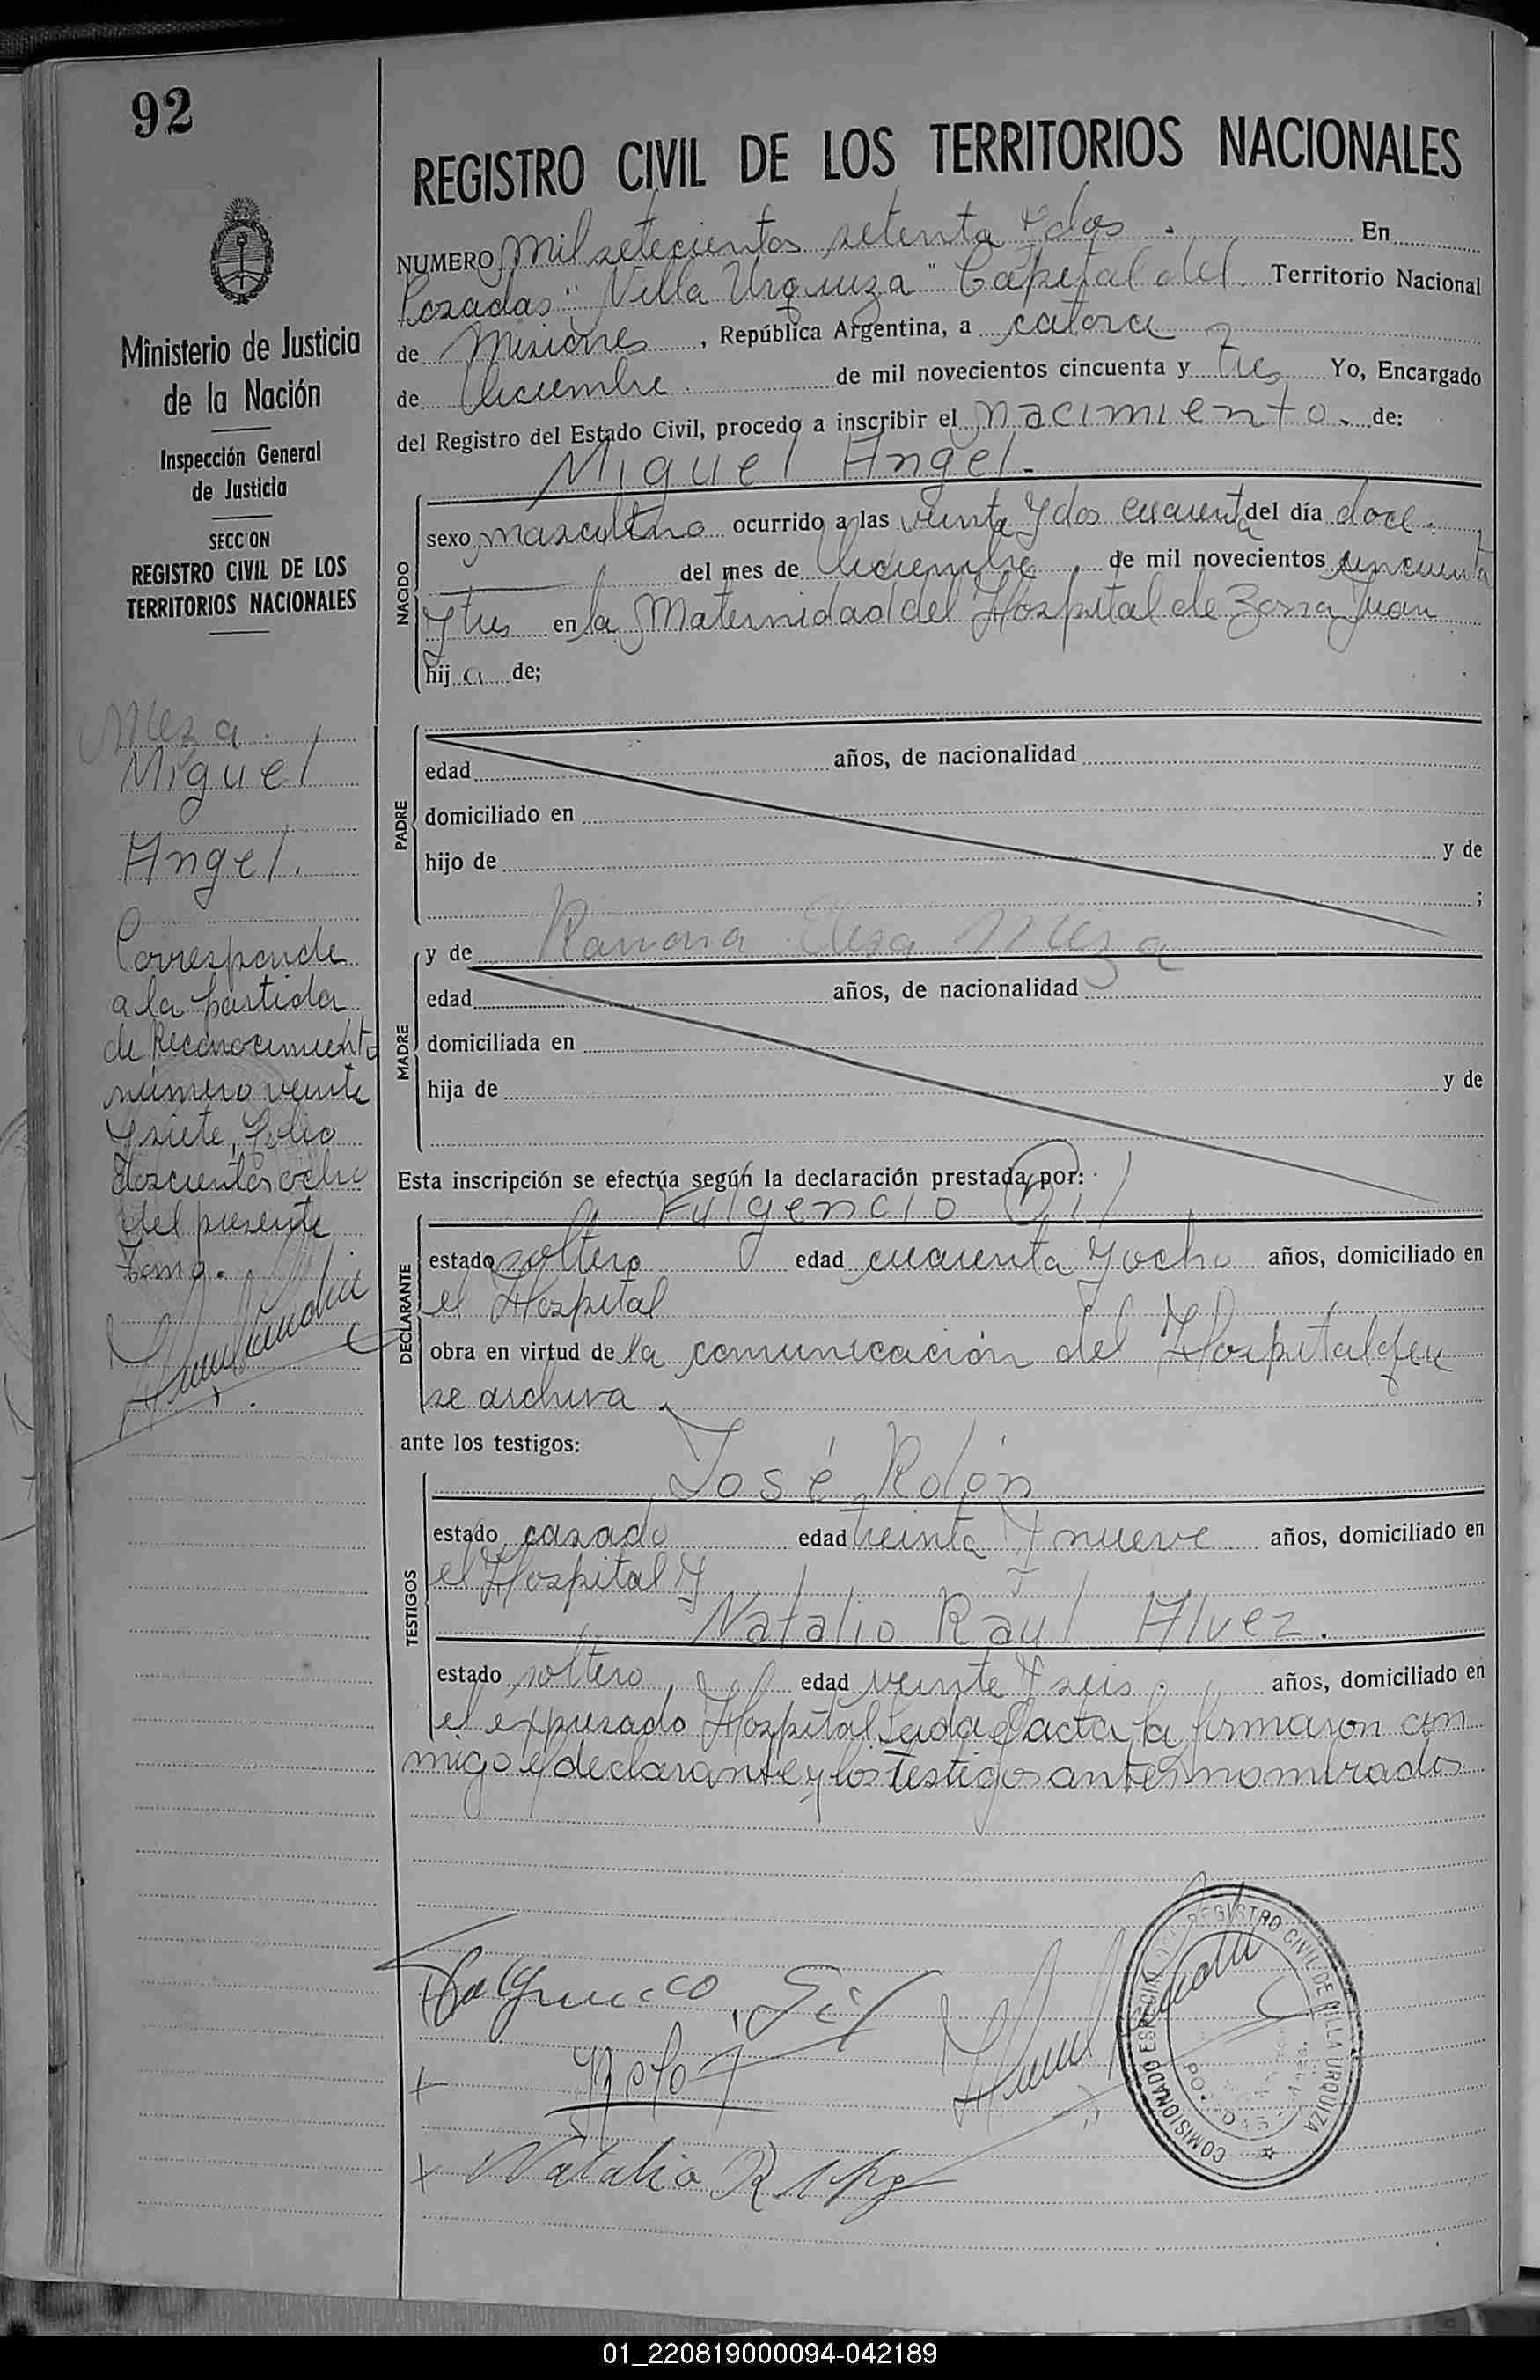 92
Ministerio de Justicia
de la Nación
Inspección General
de Justicia
SECCION
REGISTRO CIVIL DE LOS
TERRITORIOS NACIONALES
Meza
Miguel
Angel.
Corresponde
a la partida
de Reconocimiento
número veinte
y siete, folio
doscientos ocho
del presente
Tomo.
REGISTRO CIVIL DE LOS TERRITORIOS NACIONALES
NUMERO mil setecientos setenta y dos. En
Posadas "Villa Urquiza" Capital del Territorio Nacional
de Misiones, República Argentina, a catorce
de Diciembre de mil novecientos cincuenta y tres Yo, Encargado
del Registro del Estado Civil, procedo a inscribir el nacimiento. de:
Miguel Angel.
NACIDO
sexo masculino ocurrido a las veinte y dos cuarenta del día doce.
del mes de Diciembre de mil novecientos cincuenta
y tres en la Maternidad del Hospital de Zona Juan
hij a de;
PADRE
edad años, de nacionalidad
domiciliado en
hijo de y de
;
MADRE
y de Ramona Elisa Meza
edad años, de nacionalidad
domiciliada en
hija de y de
Esta inscripción se efectúa según la declaración prestada por:
DECLARANTE
Fulgencio Gil
estado soltero edad cuarenta y ocho años, domiciliado en
el Hospital
obra en virtud de la comunicación del Hospital que
se archiva.
ante los testigos:
TESTIGOS
José Rolón
estado casado edad treinta y nueve años, domiciliado en
el Hospital y
Natalio Raul Alvez.
estado soltero, edad veinte y seis. años, domiciliado en
el expresado Hospital Leida el acta, la firmaron con
migo el declarante y los testigos antes nombrados
Fulgencio Gil
Rolon
Natalio R
COMISIONADO ESPECIAL REGISTRO CIVIL DE VILLA URQUIZA
01_220819000094-042189